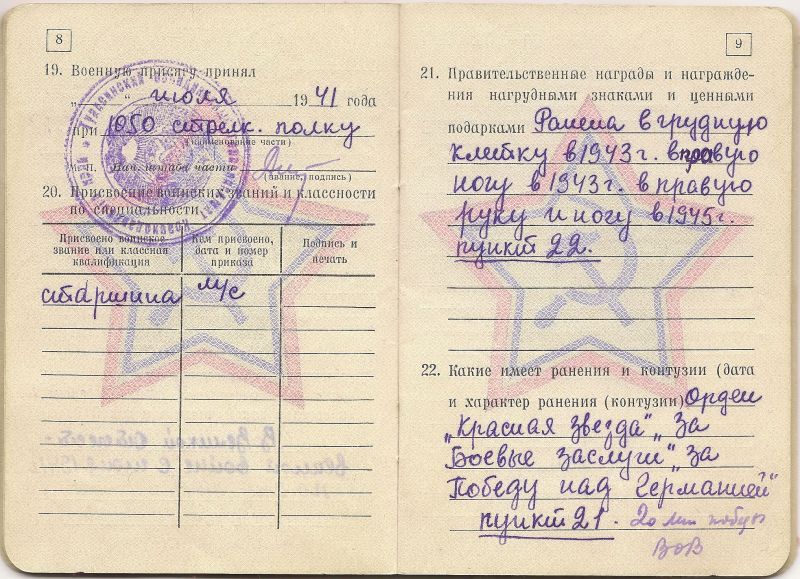 8
19. Военную присягу принял
„ “ июля 1941 года
при 1050 стрелк. полку
(наименование части)
М. П. Нач. штаба части
(звание, подпись)
20. Присвоение воинских званий и классности
по специальности
Присвоено воинское
звание или классная
квалификация
Кем присвоено,
дата и номер
приказа
Подпись и
печать
старшина м/с
9
21. Правительственные награды и награжде-
ния нагрудными знаками и ценными
подарками Ранена в грудную
клетку в 1943 г. в правую
ногу в 1943 г. в правую
руку и ногу в 1945 г.
пункт 22.
22. Какие имеет ранения и контузии (дата
и характер ранения (контузии) Орден
„Красная звезда" „За
Боевые заслуги" „За
Победу над Германией"
пункт 21. 20 лет победы
ВОВ